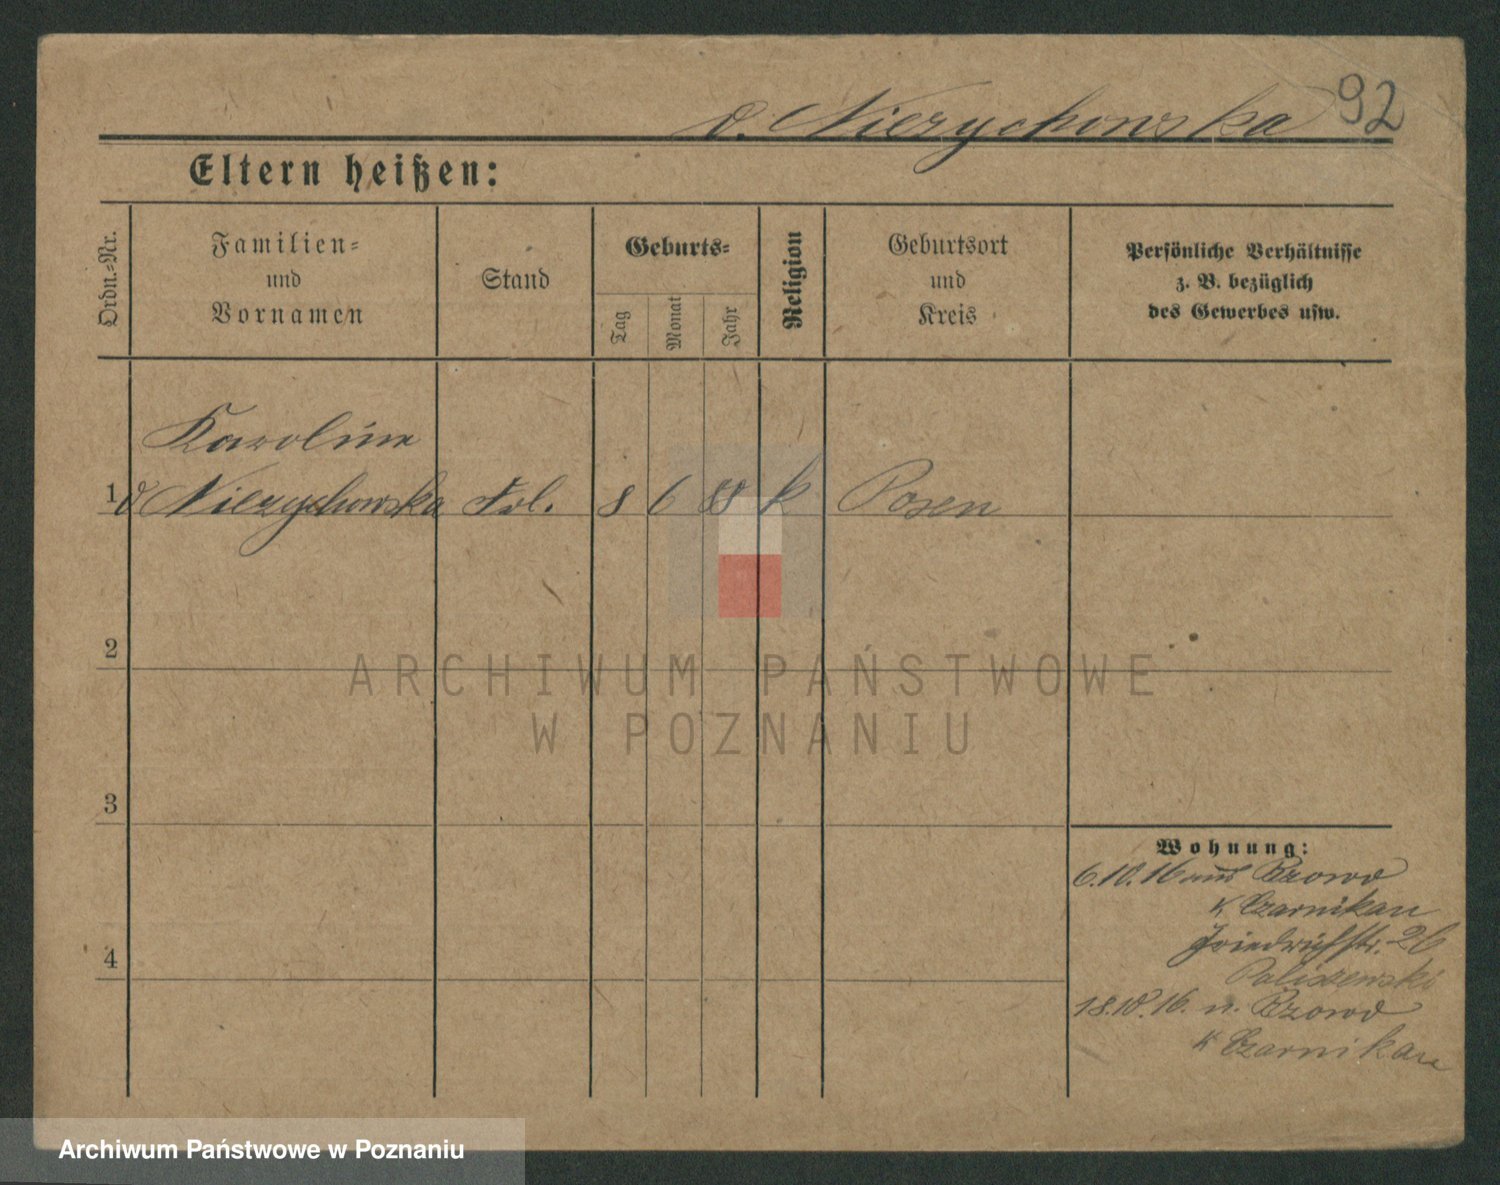 d. Nierzychowska 92
Eltern heißen:
Ordn.-Nr.
Familien-
und
Vornamen
Stand
Geburts-
Tag
Monat
Jahr
Religion
Geburtsort
und
Kreis
Persönliche Verhältnisse
z. B. bezüglich
des Gewerbes usw.
Karoline
1 d Nierzychowska Frl. 8 6 88 k Posen
2
ARCHIWUM PAŃSTWOWE
W POZNANIU
3
Wohnung:
6.10.16 aus Brzowo
K Czarnikau
Friedrichstr. 26
Paliszewski
4
18.10.16. n. Brzowo
K Czarnikau
Archiwum Państwowe w Poznaniu